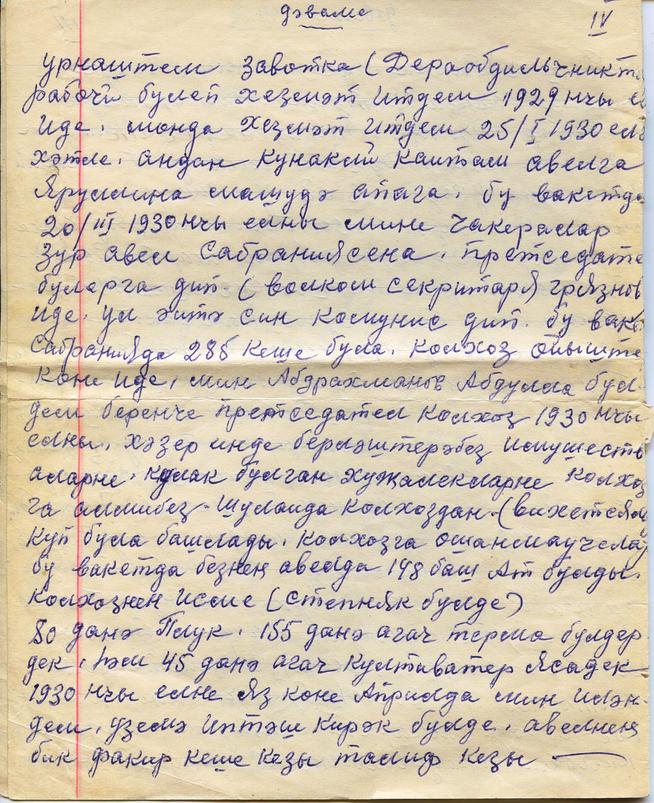 дәвамы IV
урнаштем завотка (Дераобдилъчникт
рабочи булеп хезмәт итдем 1929 нчы е
иде. монда хезмәт итдем 25/I 1930 елг
хәтле. андан кунакли кайтам авелга
Яруллина машудә апага. бу вакетда
20/III 1930 нчы елны мине чакералар
зур авел сабраниясена. претседате
буларга дип (волком секритаря грязнов
иде. ул әитә син комунис дип. бу ваке
сабранияда 285 кеше була. колхоз ойыште
коне иде, мин Абдрахманов Абдулла бул-
дем беренче претседател колхоз 1930 нчы
елны. хәзер инде берләштерәбез имушеств
аларне. кулак булган хужалекларне колхоз
га алмибез. шулайда колхоздан
куп була башлады. колхозга ошанмаучела
бу вакетда безнең авелда 148 баш Ат булды.
колхознең исме (степняк булде)
80 данә Плук. 155 данә агач терма булдер
дек. һәм 45 данә агач култиватер ясадек
1930 нчы елне яз коне Априлда мин илән-
дем. уземә иптәш кирәк булде. авелнең
бик факир кеше кезы талиф кезы —